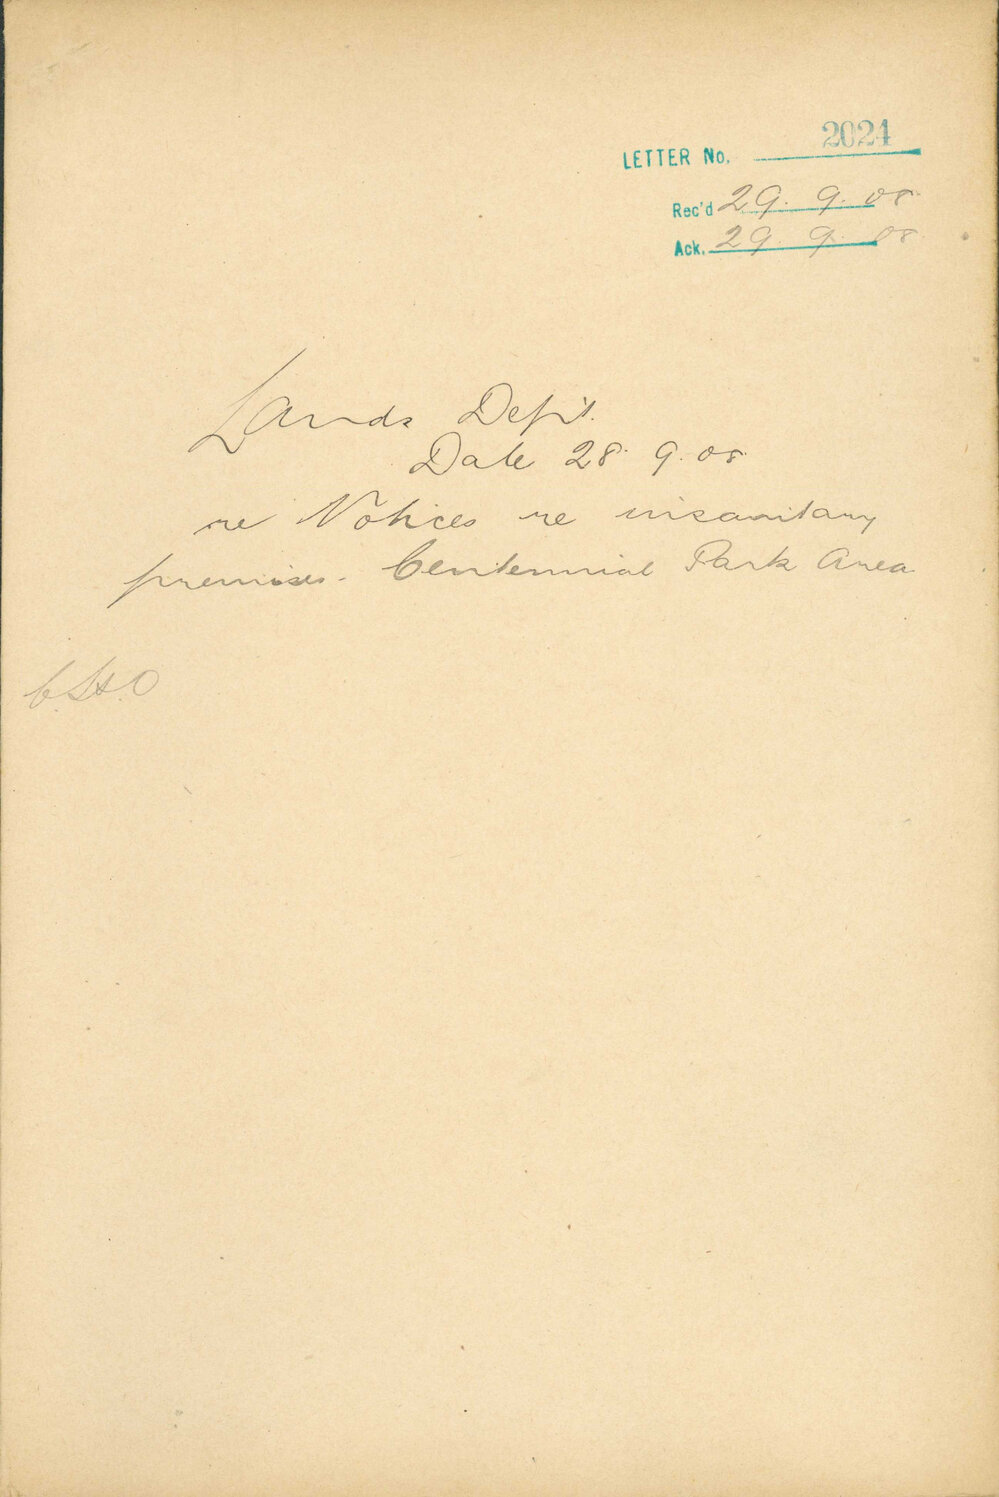 LETTER No. 2024
Rec'd 29. 9. 08.
Ack. 29 9. 08.
Lands Dept.
Date 28. 9. 08
re Notices re insanitary
premises. Centennial Park Area